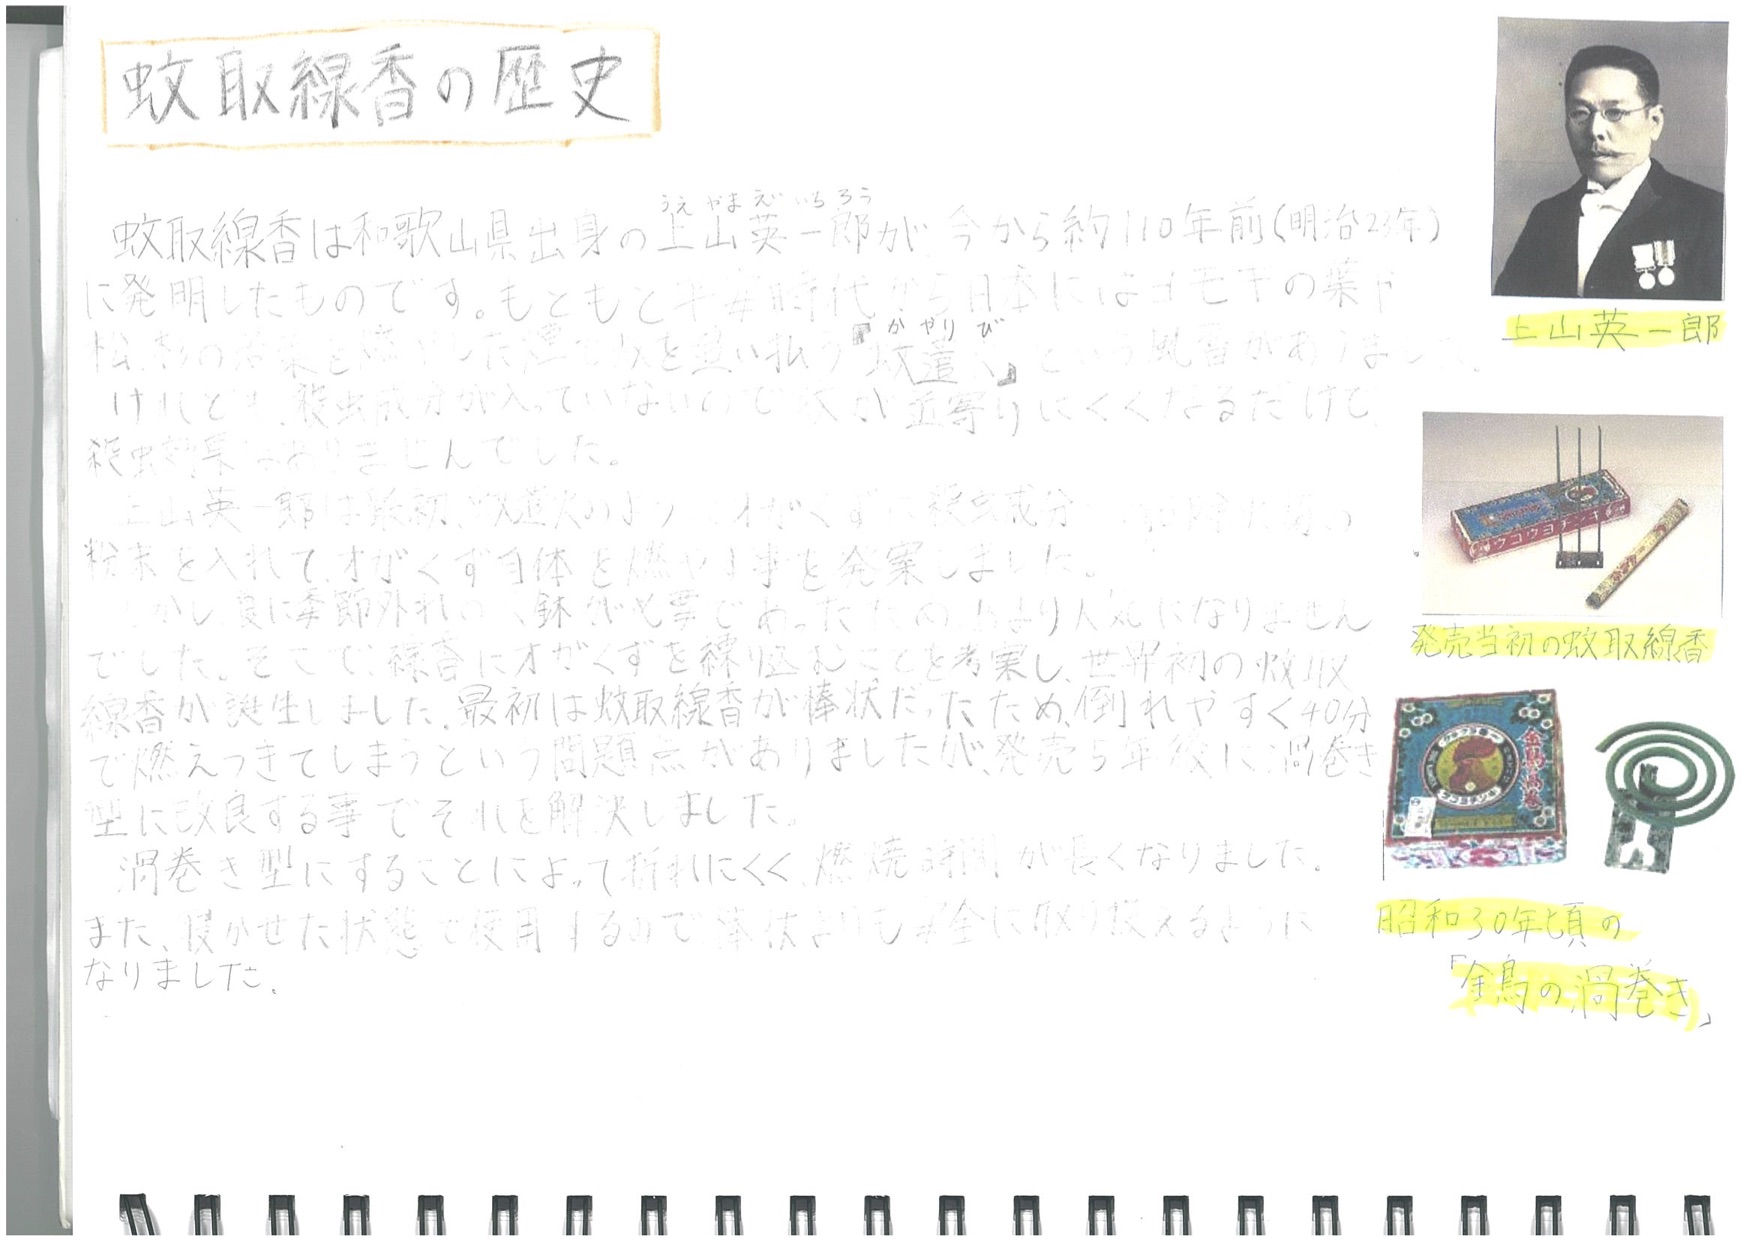 蚊取線香の歴史
うえ やま えいいちろう
蚊取線香は和歌山県出身の上山英一郎が、今から約110年前(明治23年)
に発明したものです。もともと平安時代から日本にはヨモギの葉や
松、杉の 葉を燃やした 払う『蚊遣火』という風習がありました。
かやりび
けれども、殺虫成分が入っていないので蚊が近寄りにくくなるだけで、
殺虫効果はありませんでした。
上山英一郎は最初、蚊遣火のように、オがくずに殺虫成分
粉末を入れて、オがくず自体を燃やす事を発案しました。
しかし、夏に季節外れの火鉢が必要であったためあまり人気になりません
でした。そこで、線香にオがくずを練り込むことを考案し、世界初の蚊取
線香が誕生しました。最初は蚊取線香が棒状だったため、倒れやすく40分
で燃えつきてしまうという問題点がありましたが、発売5年後に、渦巻き
型に改良する事でそれを解決しました。
渦巻き型にすることによって折れにくく、燃焼時間が長くなりました。
また、寝かせた状態で使用するので棒状よりも安全に取り扱えるように
なりました。
上山英一郎
キンチヨウヨコウ
発売当初の蚊取線香
金鳥渦巻
昭和30年頃の
「金鳥の渦巻き」